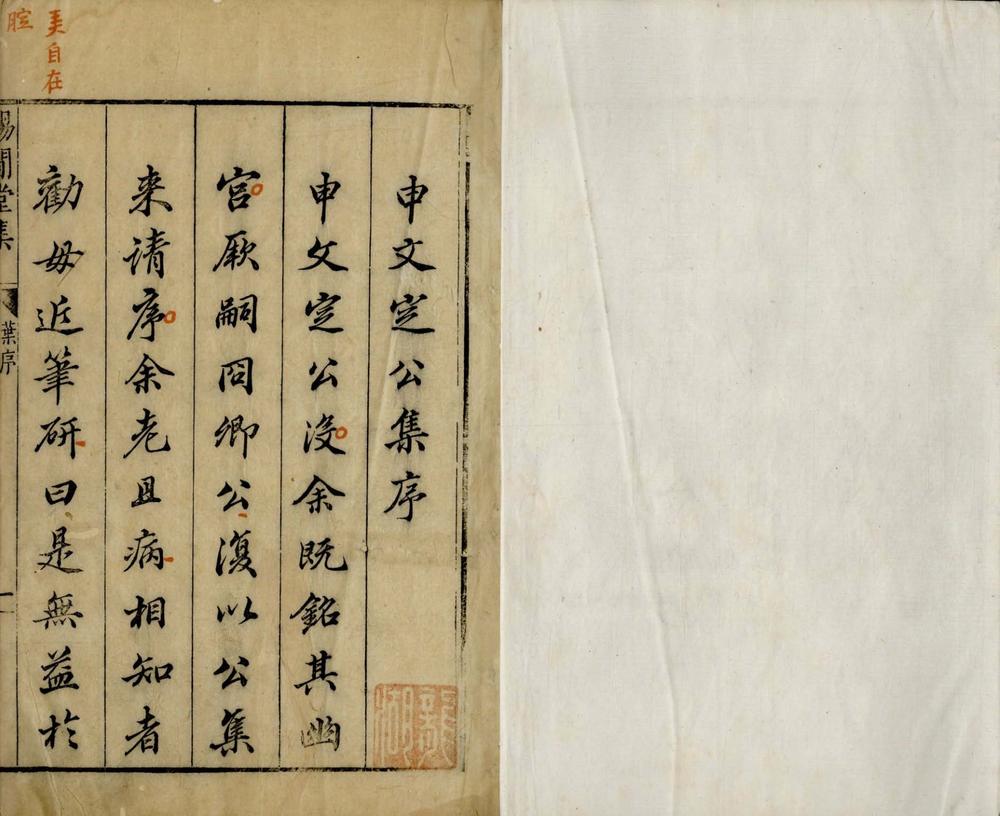 申文定公集序
申文定公沒余既銘其幽
宮厥嗣冏卿公復以公集
来請序余老且病相知者
勸毋近筆研曰是無益於
賜閒堂集
葉序
一
自在
腔